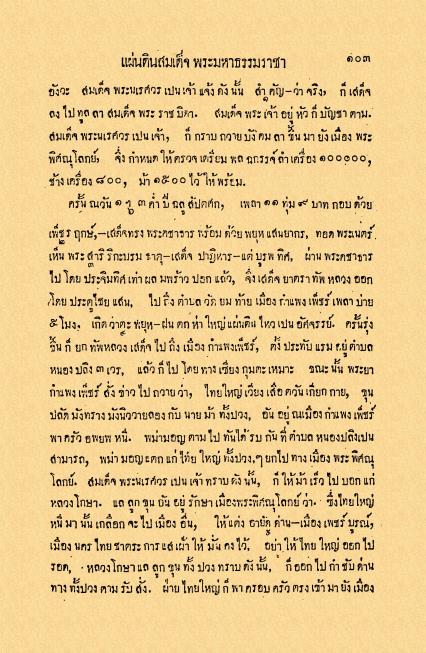 แผ่นดินสมเด็จ พระมหาธรรมราชา ๑๐๓
อังวะ สมเด็จ พระนเรศวร เปน เจ้า แจ้ง ดัง นั้น สำ คัญ–ว่า จริง, ก็ เสด็จ
ลง ไป ทูล ลา สมเด็จ พระ ราช บิดา. สมเด็จ พระ เจ้า อยู่ หัว ก็ บัญชา ตาม.
สมเด็จ พระนเรศวร เปน เจ้า, ก็ กราบ ถวาย บัง คม ลา ขึ้น มา ยัง เมือง พระ
พิศณุโลกย์, จึ่ง กำหนด ให้ ตรวจ เตรียม พล ฉกรรจ์ ลำ เครื่อง ๑๐๐๐๐๐,
ช้าง เครื่อง ๘๐๐, ม้า ๑๕๐๐ ไว้ ให้ พร้อม.
ครั้น ณวัน ๑ ๖ ๓ ค่ำ ปี ฉลู สัปตศก, เพลา ๑๑ ทุ่ม ๙ บาท กอบ ด้วย
เพ็ชร ฤกษ์,–เสด็จทรง พระคชาธาร พร้อม ด้วย พยุห แสนยากร, ทอด พระเนตร์
เห็น พระ สารีริกะบรม ธาตุ–เสด็จ ปาฏิหาร–แต่ บุรพ ทิศ, ผ่าน พระคชาธาร
ไป โดย ประจิมทิศ เท่า ผล มพร้าว ปอก แล้ว, จึ่ง เสด็จ ยาตรา ทัพ หลวง ออก
โดย ประตูไชย แสน, ไป ถึง ตำบล วัด ยม ท้าย เมือง กำแพง เพ็ชร์ เพลา บ่าย
๕ โมง. เกิด วาตะ พยุห–ฝน ตก ห่า ใหญ่ แผ่นดิน ไหว เปน อัศจรรย์. ครั้นรุ่ง
ขึ้น ก็ ยก ทัพหลวง เสด็จ ไป ถึง เมือง กำแพงเพ็ชร์, ตั้ง ประทับ แรม อยู่ ตำบล
หนอง ปลิง ๓ เวร, แล้ว ก็ ไป โดย ทาง เชียง กุมตะ เหมาะ ขณะ นั้น พระยา
กำแพง เพ็ชร์ สั่ง ข่าว ไป ถวาย ว่า, ไทยใหญ่ เวียง เสือ ควัน เกียก กาย, ขุน
ปลัด มังทราง มังนิววายลอง กับ นาย ม้า ทั้งปวง, อัน อยู่ ณเมือง กำแพง เพ็ชร์
พา ครัว อพยพ หนี. พม่ามอญ ตาม ไป ทัน ได้ รบ กัน ที่ ตำบล หนองปลิงเปน
สามารถ, พม่า มอญ แตก แก่ ไทย ใหญ่ ทั้งปวง,ๆ ยกไป ทาง เมือง พระ พิศณุ
โลกย์. สมเด็จ พระนเรศวร เปน เจ้า ทราบ ดัง นั้น, ก็ ให้ ม้า เร็ว ไป บอก แก่
หลวง โกษา. แล ลูก ขุน อัน อยู่ รักษา เมืองพระพิศณุโลกย์ ว่า. ซึ่งไทยใหญ่
หนี มา นั้น เกลือก จะ ไป เมือง อื่น, ให้ แต่ง อายัด ด่าน–เมือง เพชร์ บูรณ์,
เมือง นคร ไทย ชาตระ การ แส เผ้า ให้ มั่น คง ไว้. อย่า ให้ ไทย ใหญ่ ออก ไป
รอด, หลวงโกษา แล ลูก ขุน ทั้ง ปวง ทราบ ดัง นั้น, ก็ ออก ไป กำ ชับ ด่าน
ทาง ทั้งปวง ตาม รับ สั่ง. ฝ่าย ไทยใหญ่ ก็ พา ครอบ ครัว ตรง เข้า มา ยัง เมือง